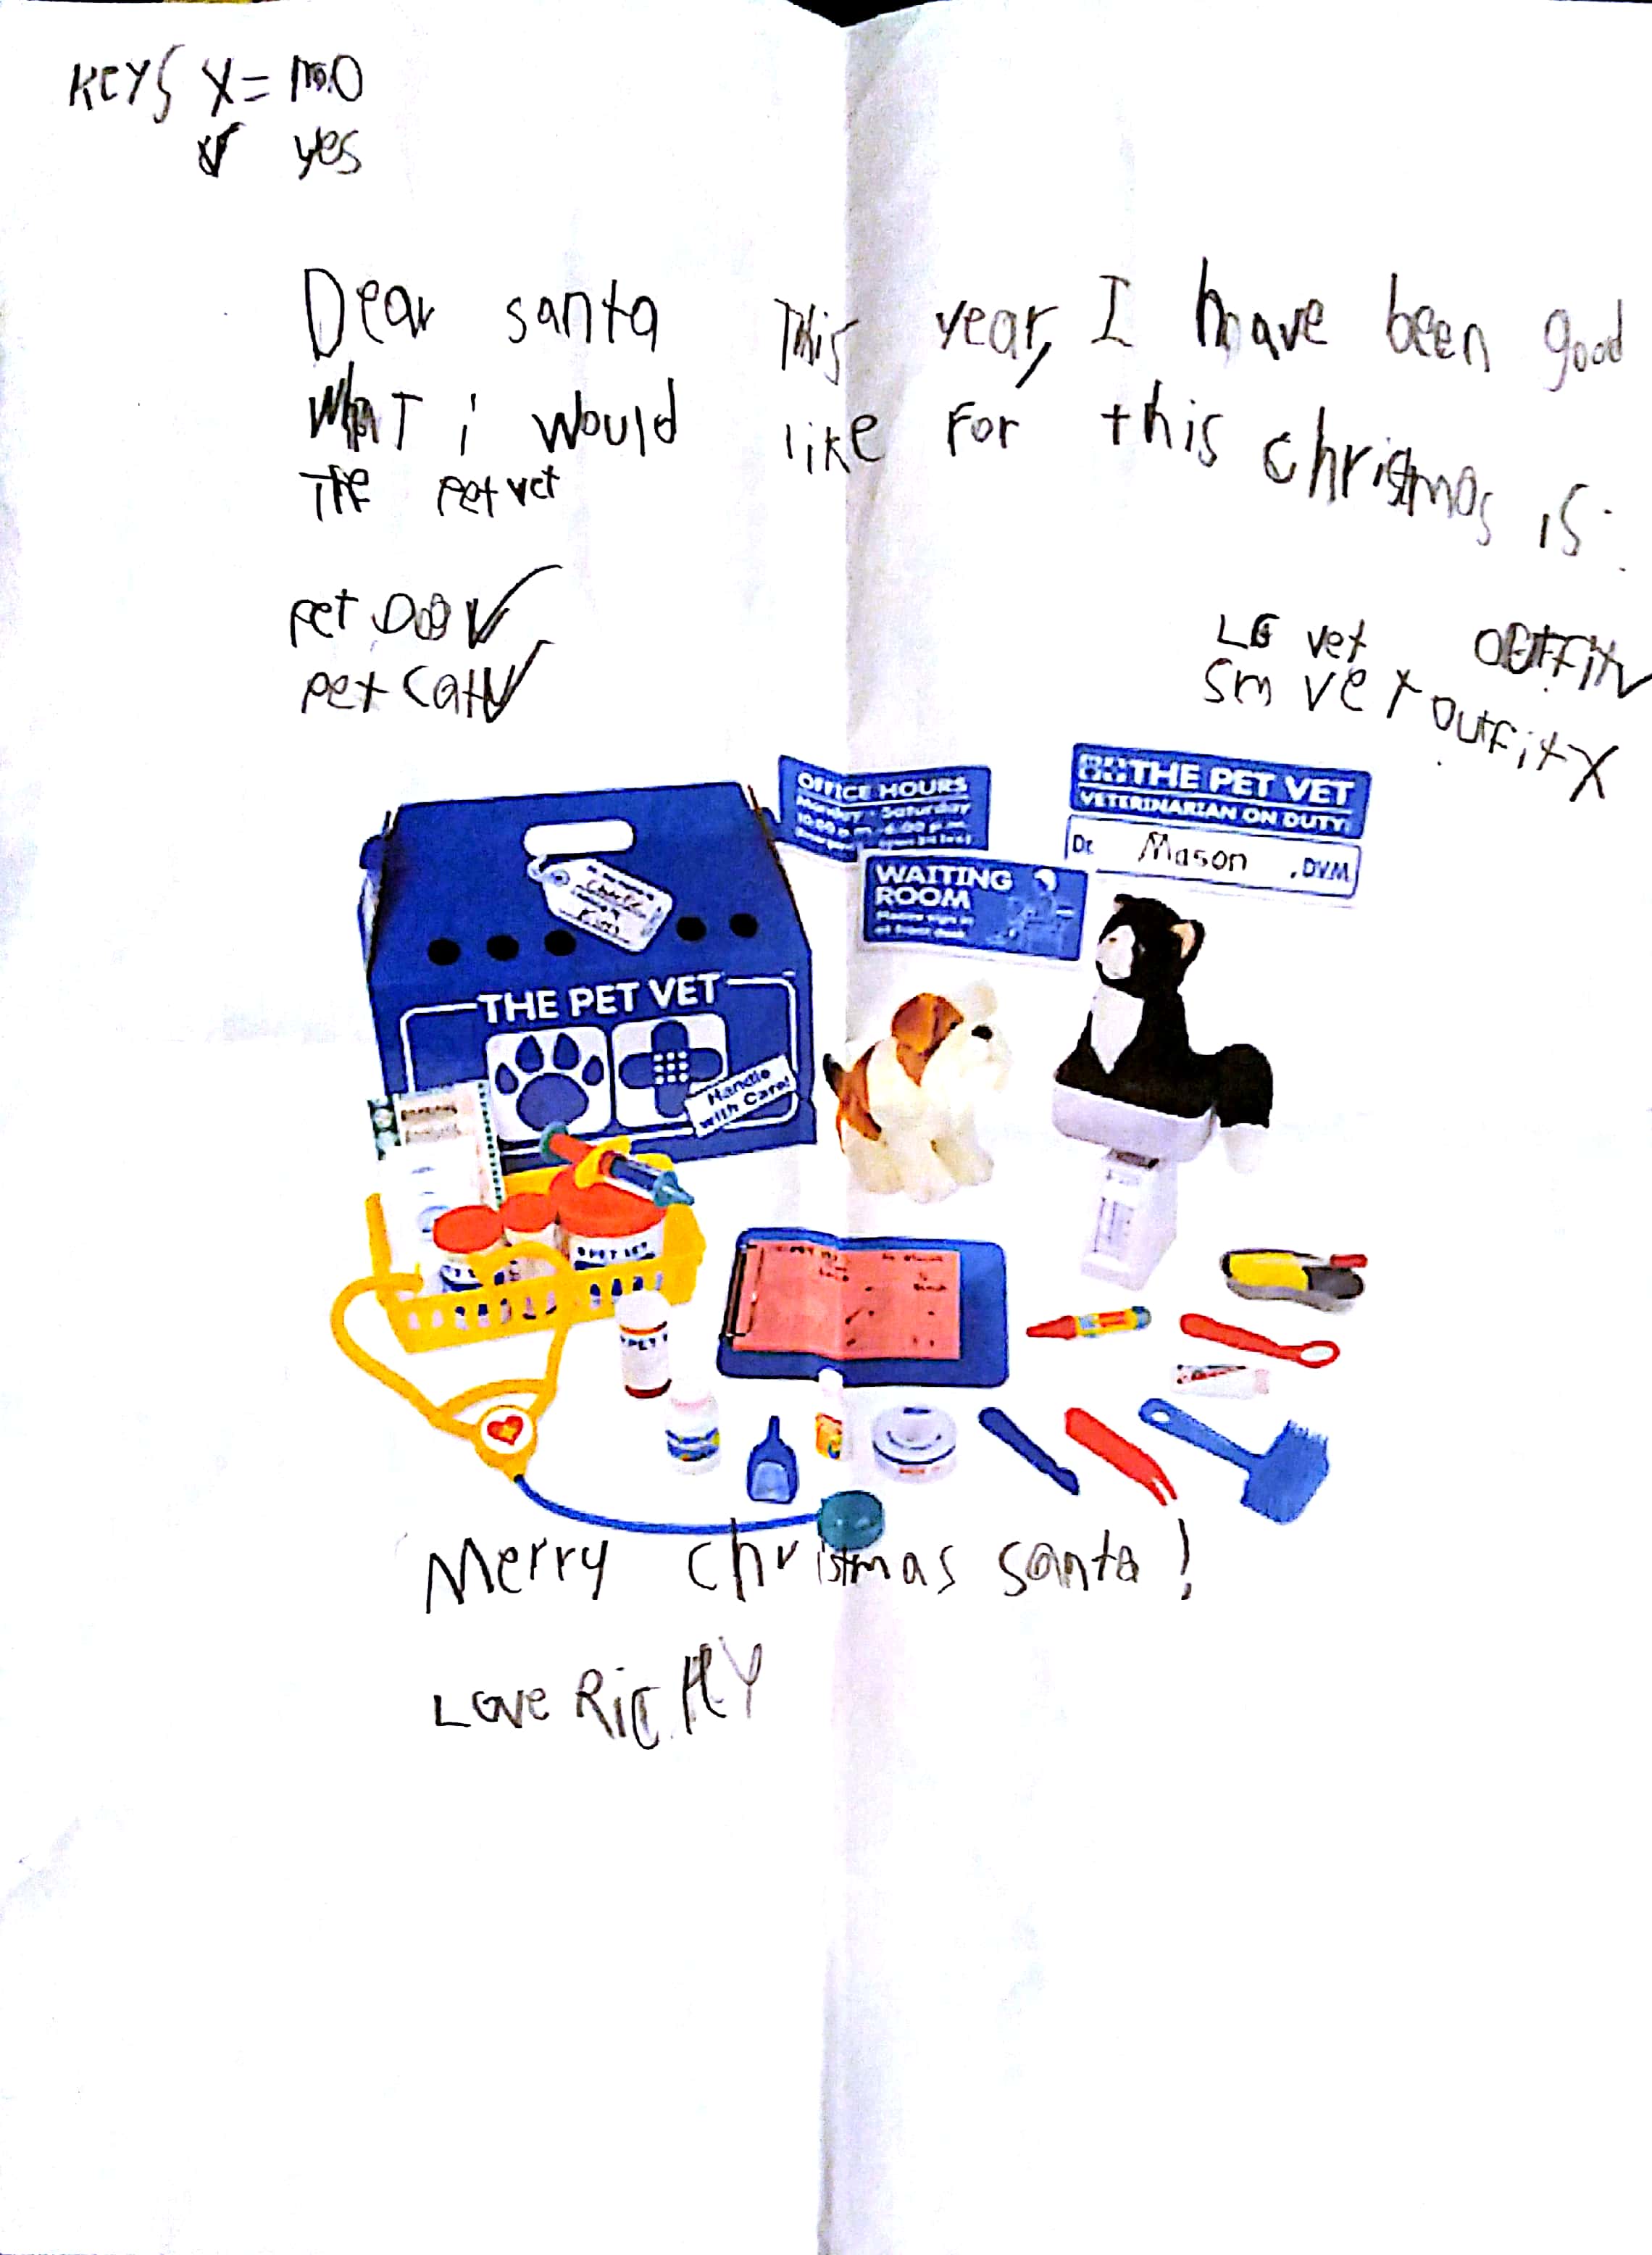 KEYS X= no
✓ yes
Dear santa This year, I have been good
What i would like For this christmas is:
THE pet vet
pet DOG ✓
pet cat ✓
LG vet OUTFit ✓
Sm vet outfit X
OFFICE HOURS
Monday - Saturday
THE PET VET
VETERINARIAN ON DUTY
Dr. Mason , DVM
WAITING
ROOM
Please sign in
at front desk
THE PET VET
Handle
with Care!
Merry christmas santa!
Love